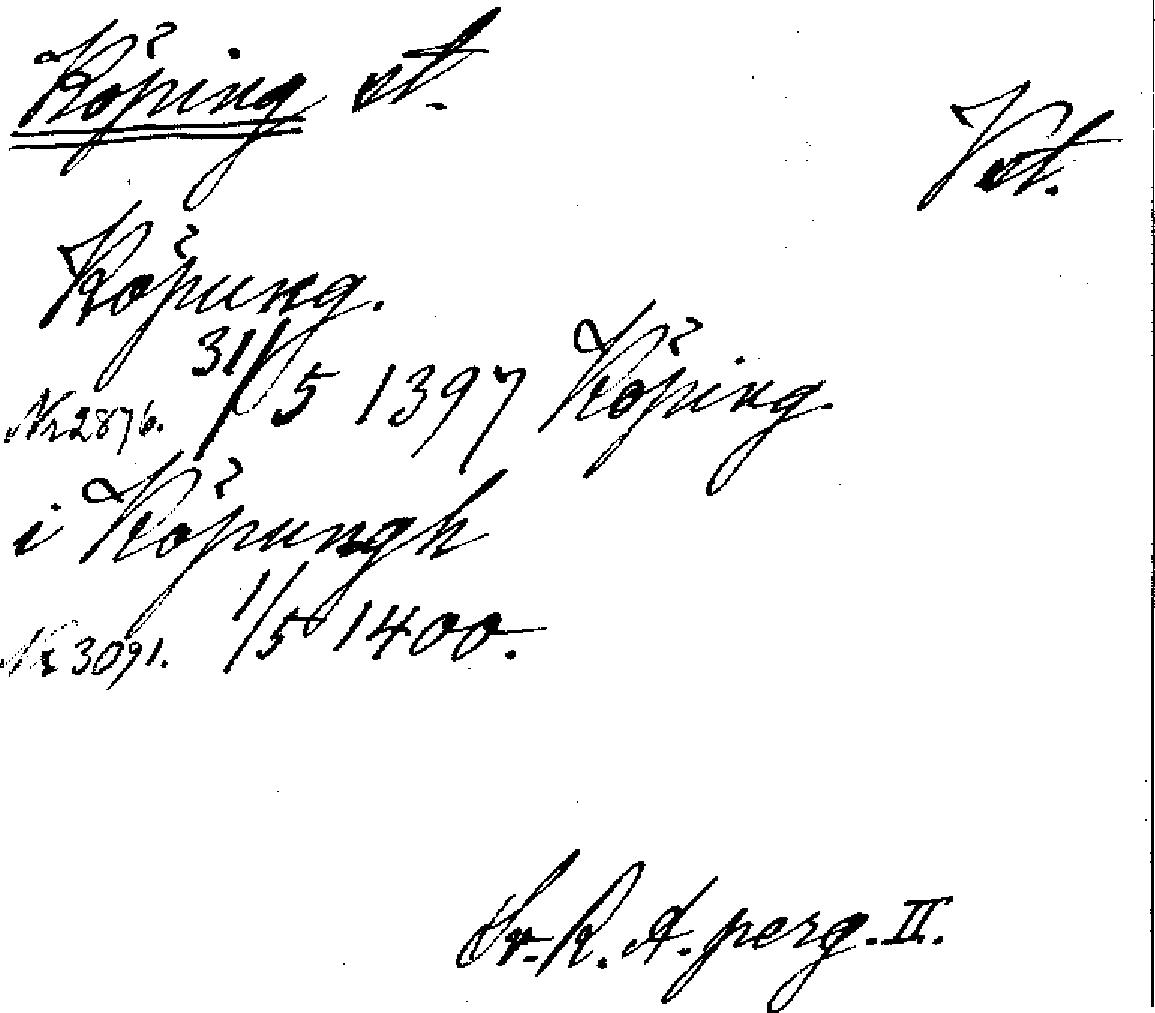 Köping st.
Vst.
Köpung.
Nr 2876. 31/5 1397 Köping.
i Köpungh
Nr 3091. 1/5 1400.
Sv. R. A. perg. II.